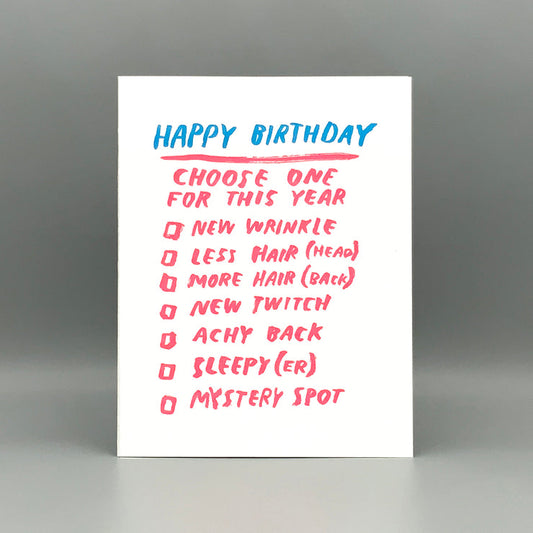 HAPPY BIRTHDAY
CHOOSE ONE
FOR THIS YEAR
NEW WRINKLE
LESS HAIR (HEAD)
MORE HAIR (BACK)
NEW TWITCH
ACHY BACK
SLEEPY(ER)
MYSTERY SPOT